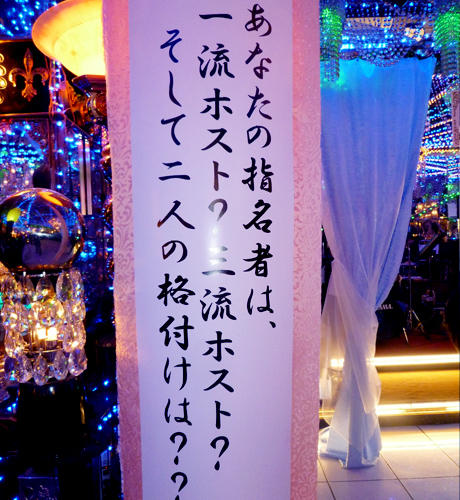 あなたの指名者は、
一流ホスト?三流ホスト?
そして二人の格付けは??